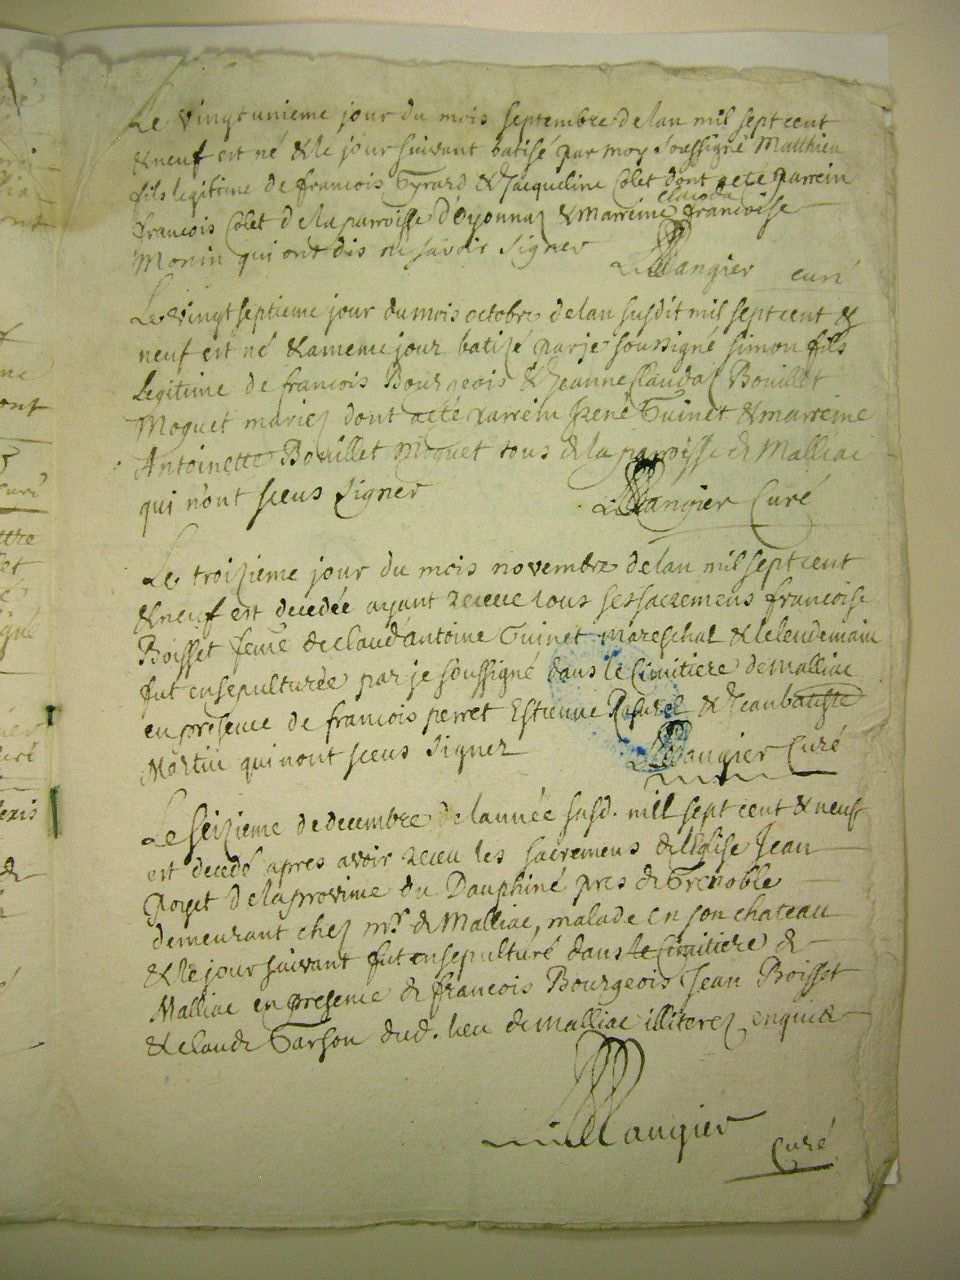 Le vingt unieme jour du mois septembre de lan mil sept cent
& neuf est né & le jour suivant batisé par moy soussigné Matthieu
fils legitime de francois Tyrard & Jacqueline Colet dont a eté parrein
claauda
francois Colet de la parroisse d'Oyonnaz & marreine francoise
Monin qui ont dis ne savoir signer Mangier curé
Le vingt septieme jour du mois octobre de lan susdit mil sept cent &
neuf est né & a meme jour batizé par je soussigné simon fils
legitime de francois Bourgeois & Jeanne Claudaz Bouillet
Moquet mariez dont a eté parrein René Guinet & marreine
Antoinette Bouillet Moquet tous de la parroisse de Malliac
qui n'ont sceus signer Mangier Curé
Le troizieme jour du mois novembre de lan mil sept cent
& neuf est decedée ayant receue tous ses sacremens francoise
Boisset feme de claud'antoine Guinet mareschal & le lendemain
fut ensepulturée par je soussigné dans le Cimitiere de Malliac
en presence de francois perret Estienne & Jean batiste
Martin qui n'ont sceus signer Mangier Curé
Le seizieme de decembre de l'année susd. mil sept cent & neuf
est decedé apres avoir receu les sacremens de l'Eglise Jean
poyet de la province du Dauphiné pres de Grenoble
demeurant chez mr. de Malliac, malade en son chateau
& le jour suivant fut ensepulturé dans le Cimitiere de
Malliac en presence de francois Bourgeois Jean Boisset
& claude Tarson dud. lieu de Malliac illiterez enquis
Mangier
Curé